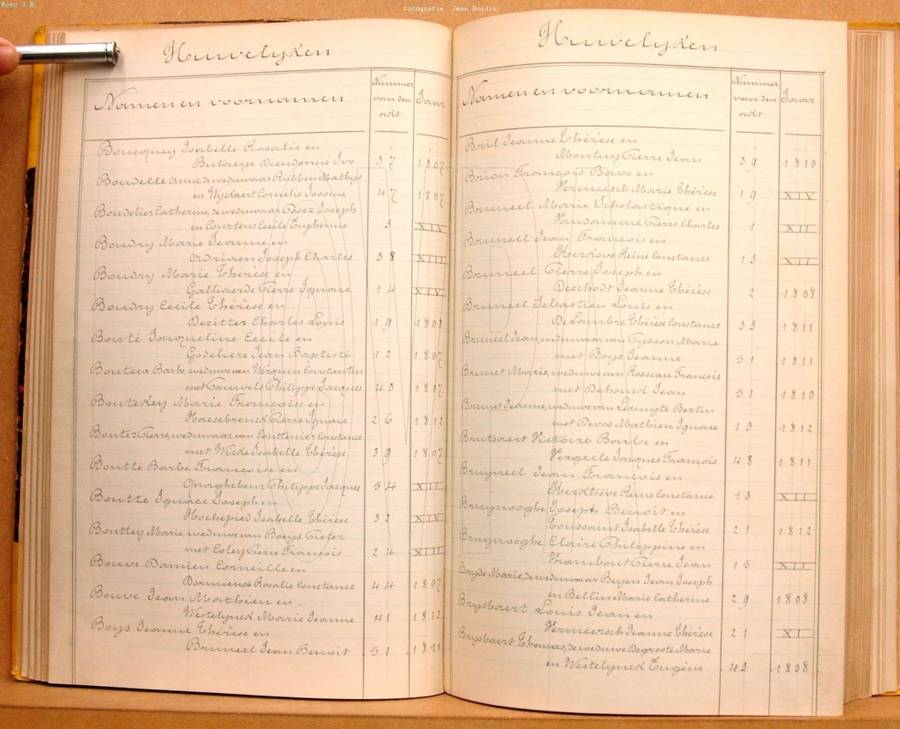 Foto J.B.
fotografie Jean Bordin
Huwelijken
Namen en voornamen
Nummer van den acht
Jaar
Boucquey Isabelle Rosalie en
Butaeye Dieudonné Ivo 37 1807
Boudelle Anne, de weduwaar Rubben Mathys
en Wyckaert Cornélie Josoine 47 1807
Boudelier Catherine, de weduwaar Joseph
en Courtens Cécile Euphemie 3 XIV
Boudry Marie Jeanne en
Adriaen Joseph Charles 38 XIII
Boudry Marie Thérèse en
Pierre Ignace 14 XIV
Boudry Cecile Thérèse en
Dezitter Charles Louis 19 1808
Bouté Jacqueline Cecile en
Godeliere Jean Baptiste 12 1807
Bouteca Barbe weduwe van Verquin Constantin
met Cauwels Philippe Jacques 43 1807
Boutekey Marie Françoise en
Haesebrouck Pierre Ignace 26 1812
Bouter Pierre, weduwaar van Couttenier Constance
met Wilde Isabelle Thérèse 39 1807
Boutté Barbe Françoise en
Quaghebeur Philippe Jacques 54 XII
Boutte Ignace Joseph en
Hochepied Isabelle Thérèse 32 XIV
Bouttey Marie, weduwe van Boeys Pieter
met Coley Pierre François 24 XIII
Bouve Damien Corneille en
Rosalie Constance 44 1807
Bouve Jean Mathieu en
Westelynck Marie Jeanne 41 1812
Boys Jeanne Thérèse en
Bruneel Jean Benoit 51 1811
Huwelijken
Namen en voornamen
Nummer van den acht
Jaar
Jeanne Thérèse en
Pierre Jean 39 1810
Brion François Bave en
Vermeesch Marie Thérèse 19 XIV
Bruneel Marie Scholastique en
Vandomme Pierre Charles 1 XII
Bruneel Jean François en
Reine Constance 13 XII
Bruneel Pierre Joseph en
Deschodt Jeanne Thérèse 2 1808
Bruneel Sebastien Louis en
De Lambre Thérèse Constance 33 1811
Brunet Jean, weduwaar van Cysson Marie
met Boys Jeanne 51 1811
Brunet Marie, weduwe van Rosseau François
met Dehouck Jean 51 1810
Brunet Jeanne, weduwe van Bertin
met Devos Mathieu Ignace 13 1812
Brutsaert Victoire Barbe en
Vergeile Jacques François 48 1811
Bruyneel Jean François en
Reine Constance 13 XII
Bruynooghe Joseph Benoit en
Toussaint Isabelle Thérèse 21 1812
Bruynooghe Claire Philippine en
Trambout Pierre Jean 15 XII
Bryde Marie, de weduwaar Beyen Jean Joseph
en Bellin Marie Catherine 29 1808
Brysbaert Louis Jean en
Vermeersch Jeanne Thérèse 21 XI
Brysbaert Thomas, de weduwe Degroote Marie
en Westelynck Eugène 43 1808